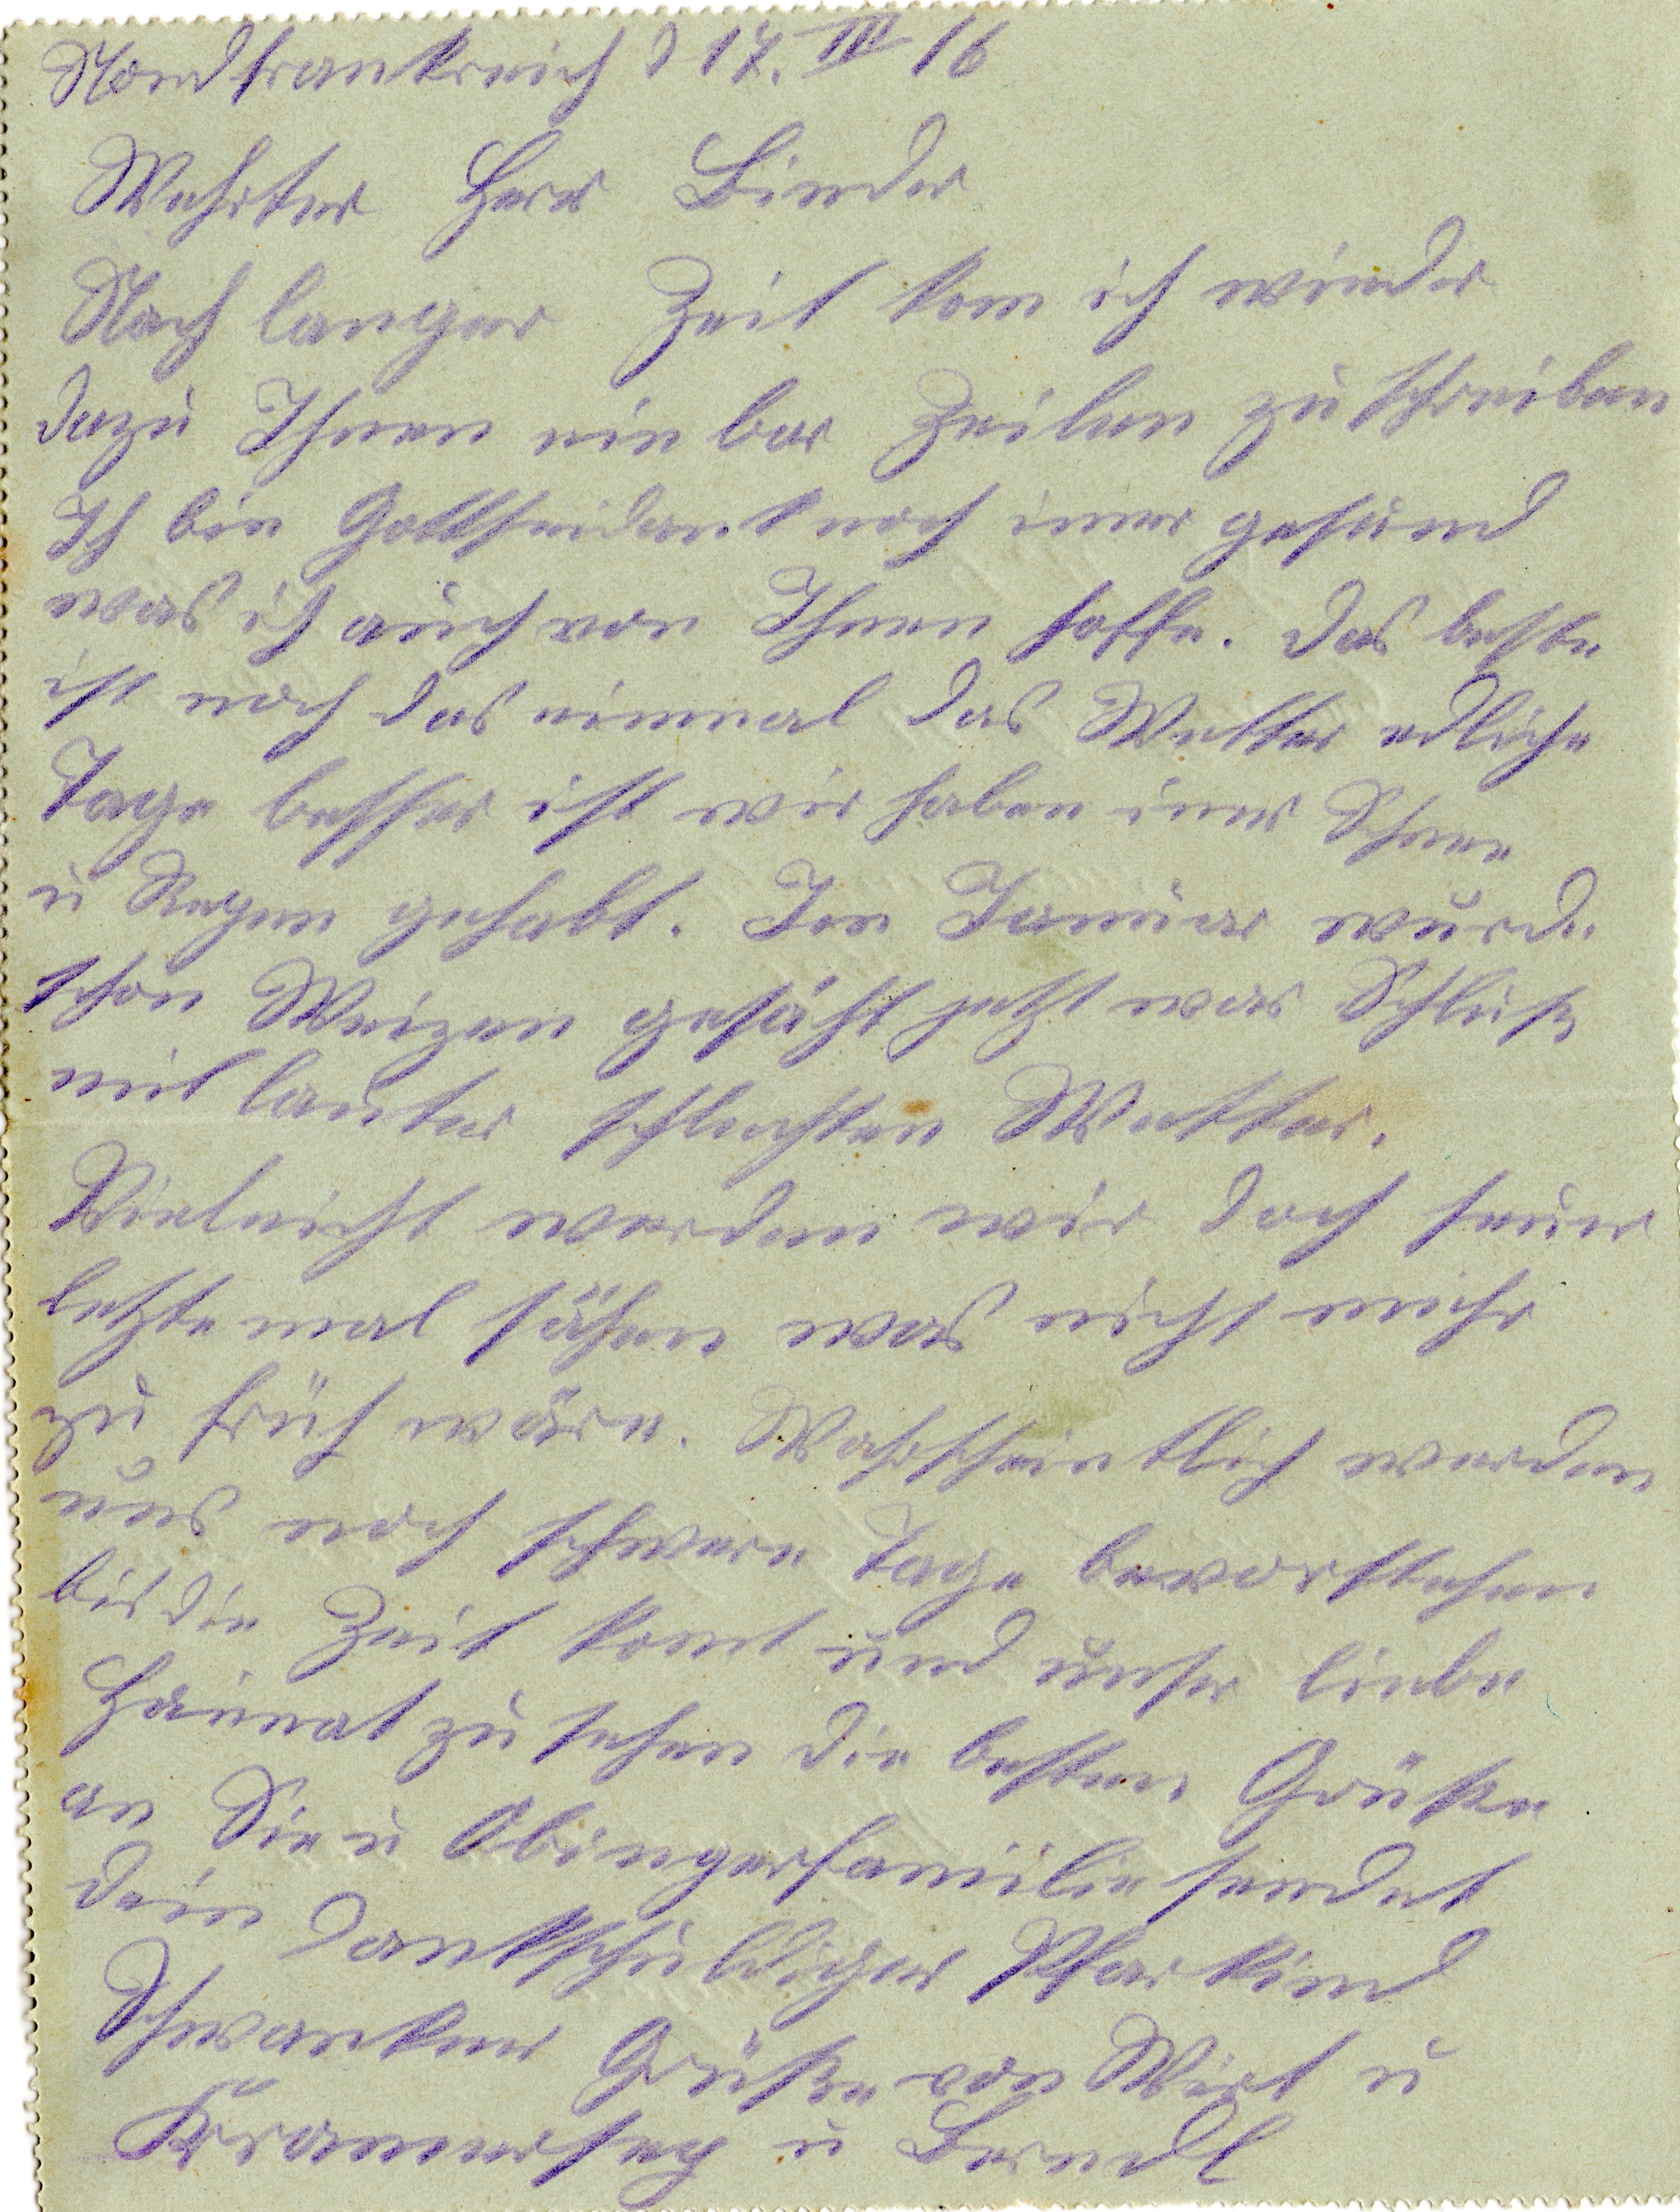 Nordfrankreich d 17. III 16
Wehrter Herr Binder
Nach langer Zeit kom ich wieder
dazu Ihnen ein bar Zeilen zu schreiben
Ich bin Gottseidank noch imer gesund
was ich auch von Ihnen hoffe. Das beste
ist noch das einmal das Wetter edliche
Tage besser ist wir haben imer Schnee
u Regen gehabt. Im Januar wurde
schon Weizen gesäht jetzt war Schluß
mit lauter schlechten Wetter.
Vieleicht werden wir doch heuer
letztemal sähen was nicht mehr
zu früh wäre. Wahrscheintlich werden
uns noch schwere Tage bevorstehen
bis die Zeit komt und unser liebe
Heimat zu sehen die besten Grüße
an Sie u Obingerfamilie sendet
dein dankschuldiger Pfarkind
Schwanker Grüße von Wirt u
u Berndl